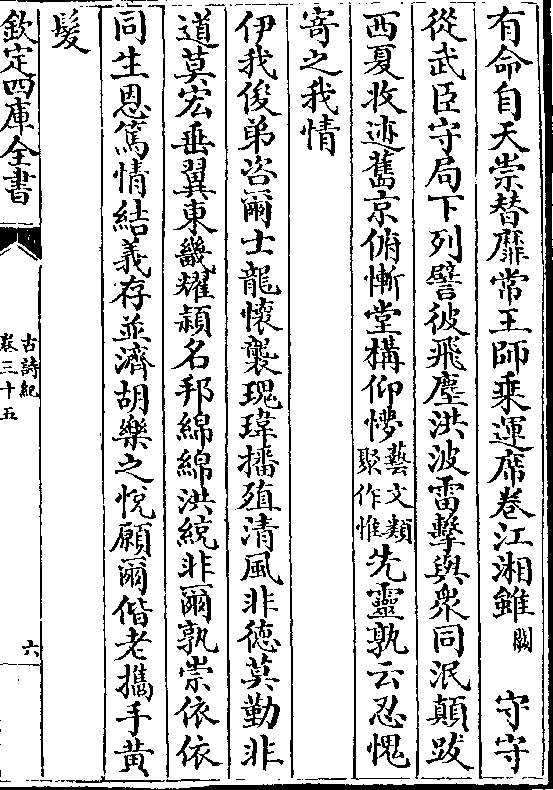 有命自天崇替靡常王師乘運席卷江湘雖闕 守守
從武臣守局下列譬彼飛塵洪波雷擊與衆同泯顛跋
西夏收迹舊京俯慙堂構仰懜藝文類聚作惟先靈孰云忍愧
寄之我情
伊我俊弟咨爾士龍懷襲瑰瑋播殖清風非德莫勤非
道莫宏垂翼東畿耀穎名邦綿綿洪統非爾孰崇依依
同生恩篤情結義存並濟胡樂之悅願爾偕老攜手黄
髮
欽定四庫全書
古詩紀
卷三十五
六